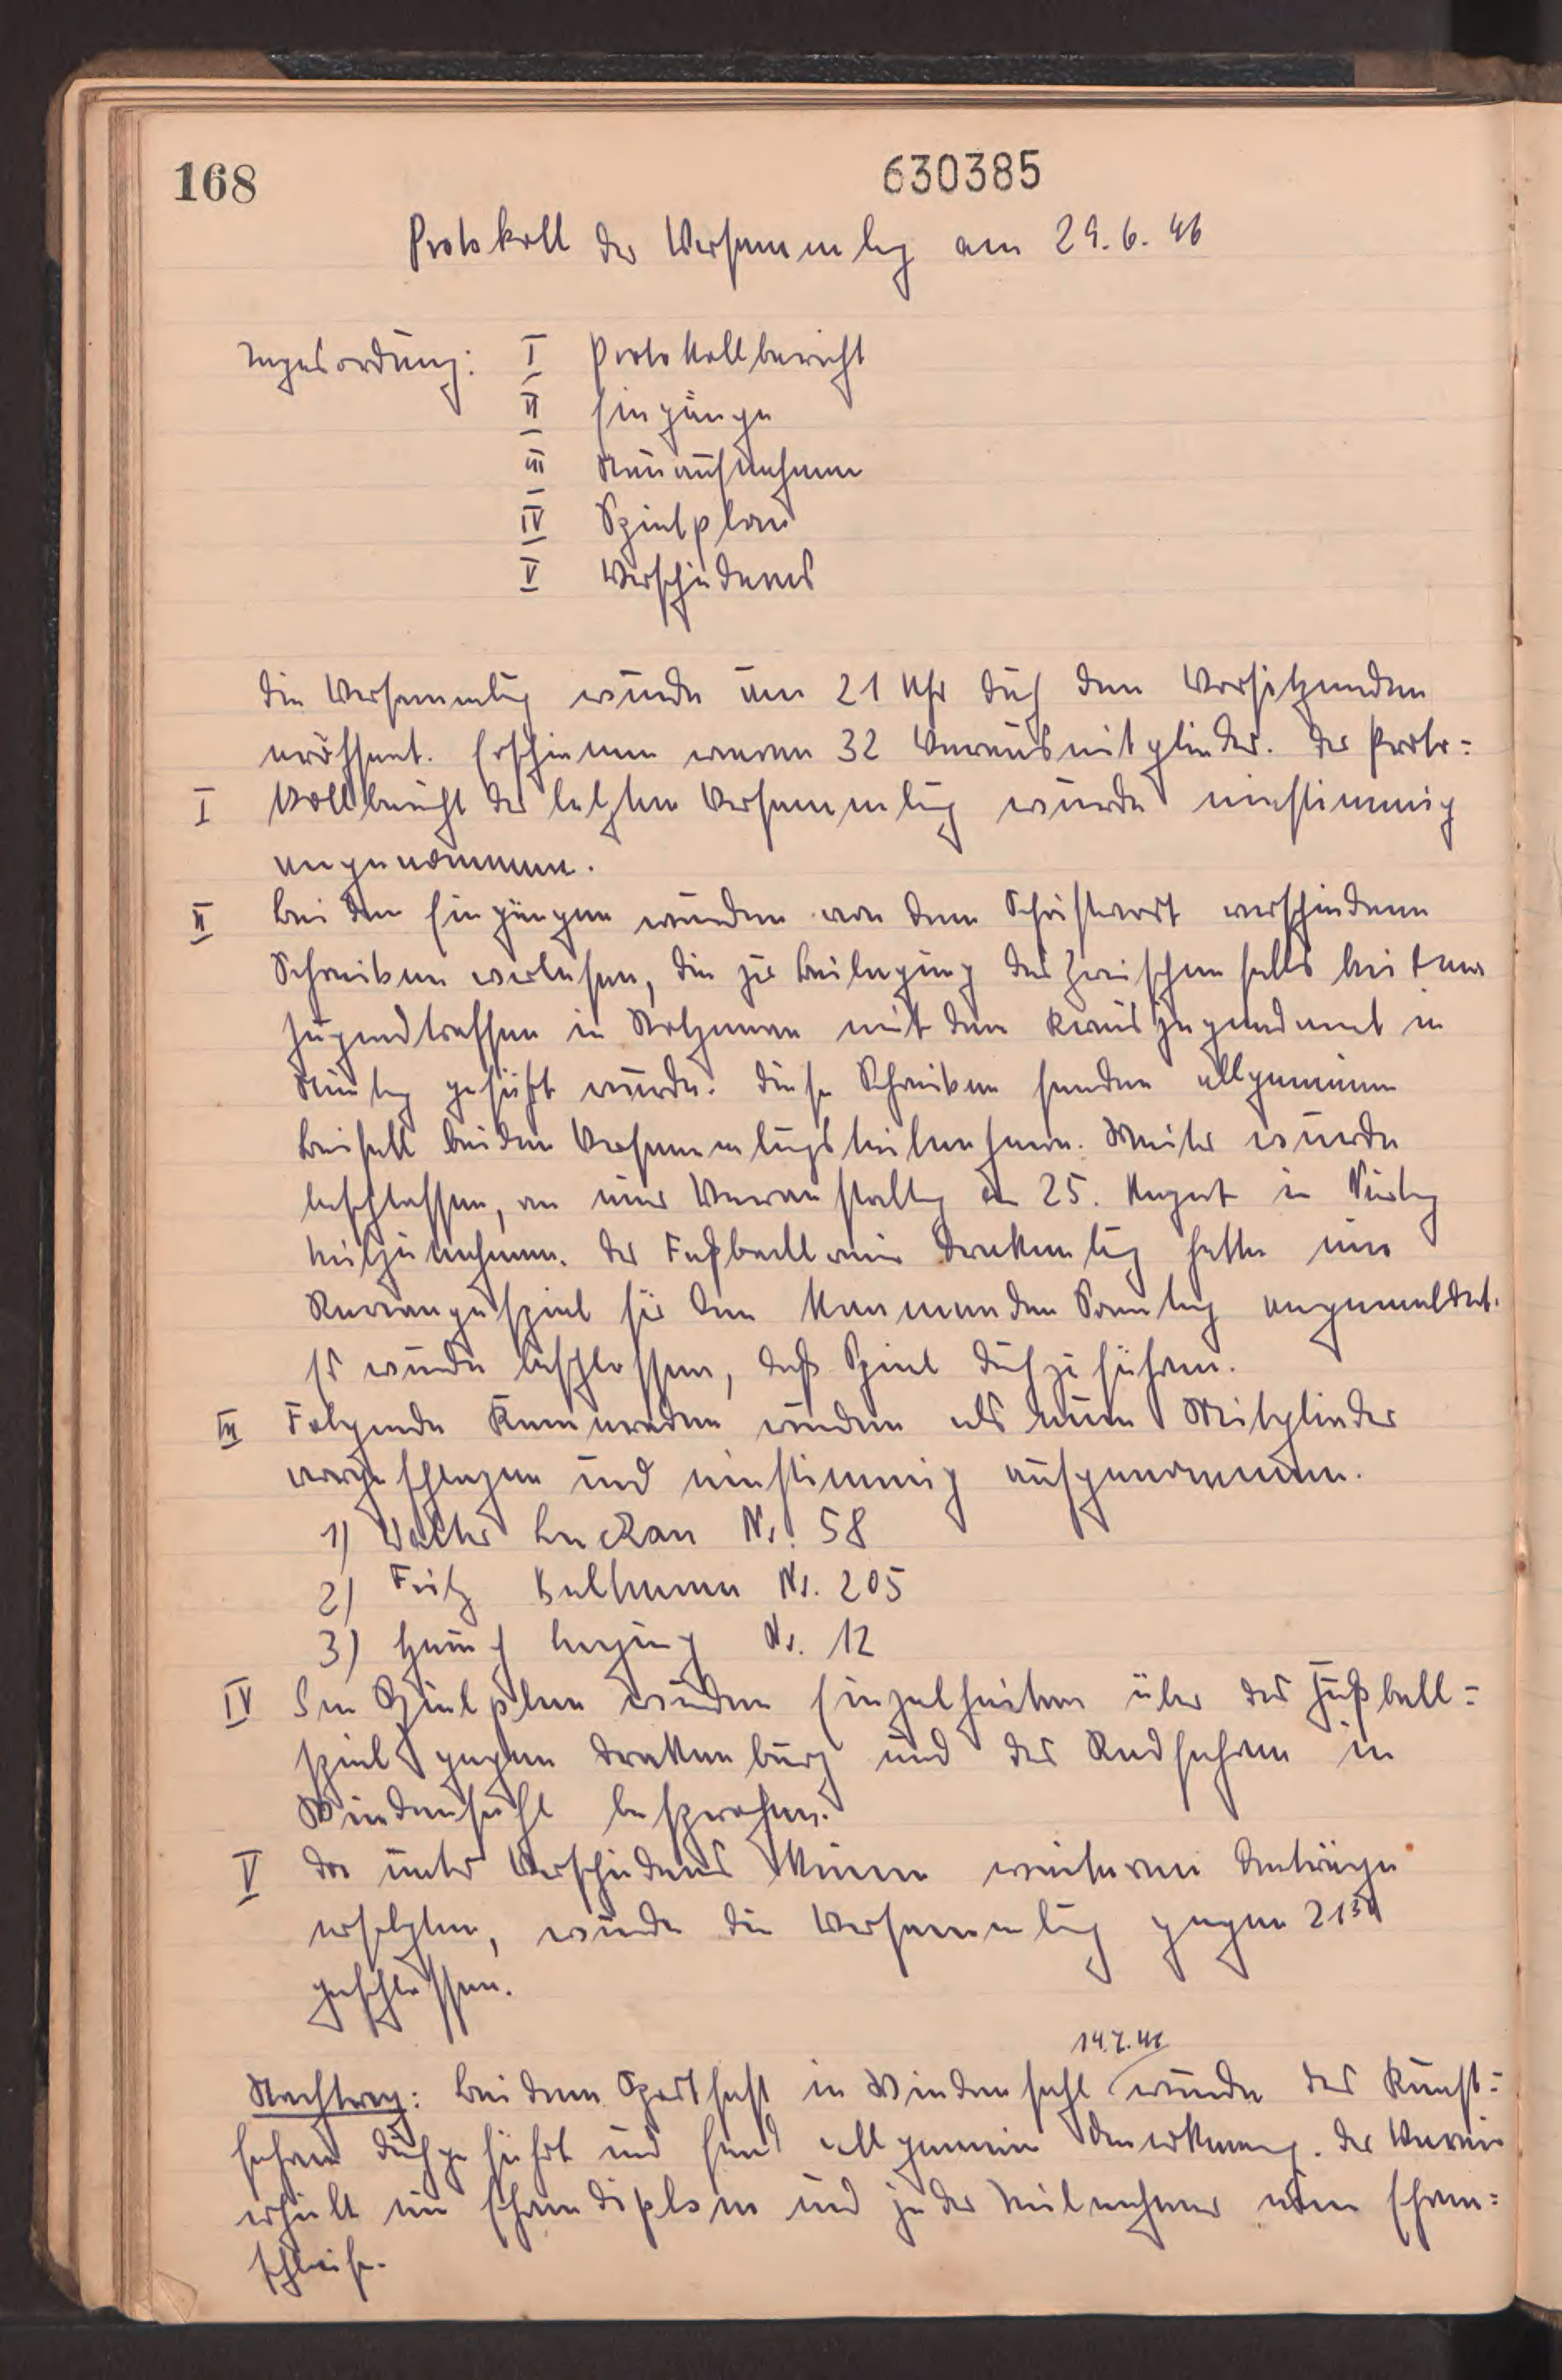 168
630385
Protokoll der Versammlg am 29.6.46
Tagesordnung: I Protokollbericht
II Eingänge
III Neuaufnahmen
IV Spielplan
V Verschiedenes
Die Versammlung wurde um 21 Uhr durch den Vorsitzenden
eröffnet. Erschienen waren 32 Vereinsmitglieder. Der Proto=
I kollbericht der letzten Versammlung wurde einstimmig
angenommen.
II Bei den Eingängen wurden von dem Schriftwart verschiedene
Schreiben verlesen, die zur Beilegung des Zwischenfalls bei dem
Jugendtreffen in Holzminden mit dem Kreisjugendamt in
geführt wurde. Diese Schreiben fanden allgemeinen
Beifall bei den Versammlungsteilnehmern. Weiter wurde
beschlossen, an einer Veranstaltg am 25. August in Nienbg
teilzunehmen. Der Fußballverein Drakenbg hatte ein
Revanchespiel für den kommenden Sonntag angemeldet.
Es wurde beschlossen, daß Spiel durchzuführen.
III Folgende Kameraden wurden als neue Mitglieder
vorgeschlagen und einstimmig aufgenommen.
1) Walter Nr. 58
2) Fritz Nr. 205
3) Heinrich Nr. 12
IV Im Spielplan wurden Einzelheiten über das Fußball=
spiel gegen Drakenburg und das Radfahren in
Wendenfohl besprochen.
V Da unter Verschiedenes keine weiteren Anträge
erfolgten, wurde die Versammlung gegen 21 30
geschlossen.
14.7.46
Nachtrag: Bei dem Sportfest in wurde das Kunst=
fahren durchgeführt und fand allgemein Anerkennung. Der Verein
erhielt ein Ehrendiplom und jeder Teilnehmer eine Ehren=
schleife.